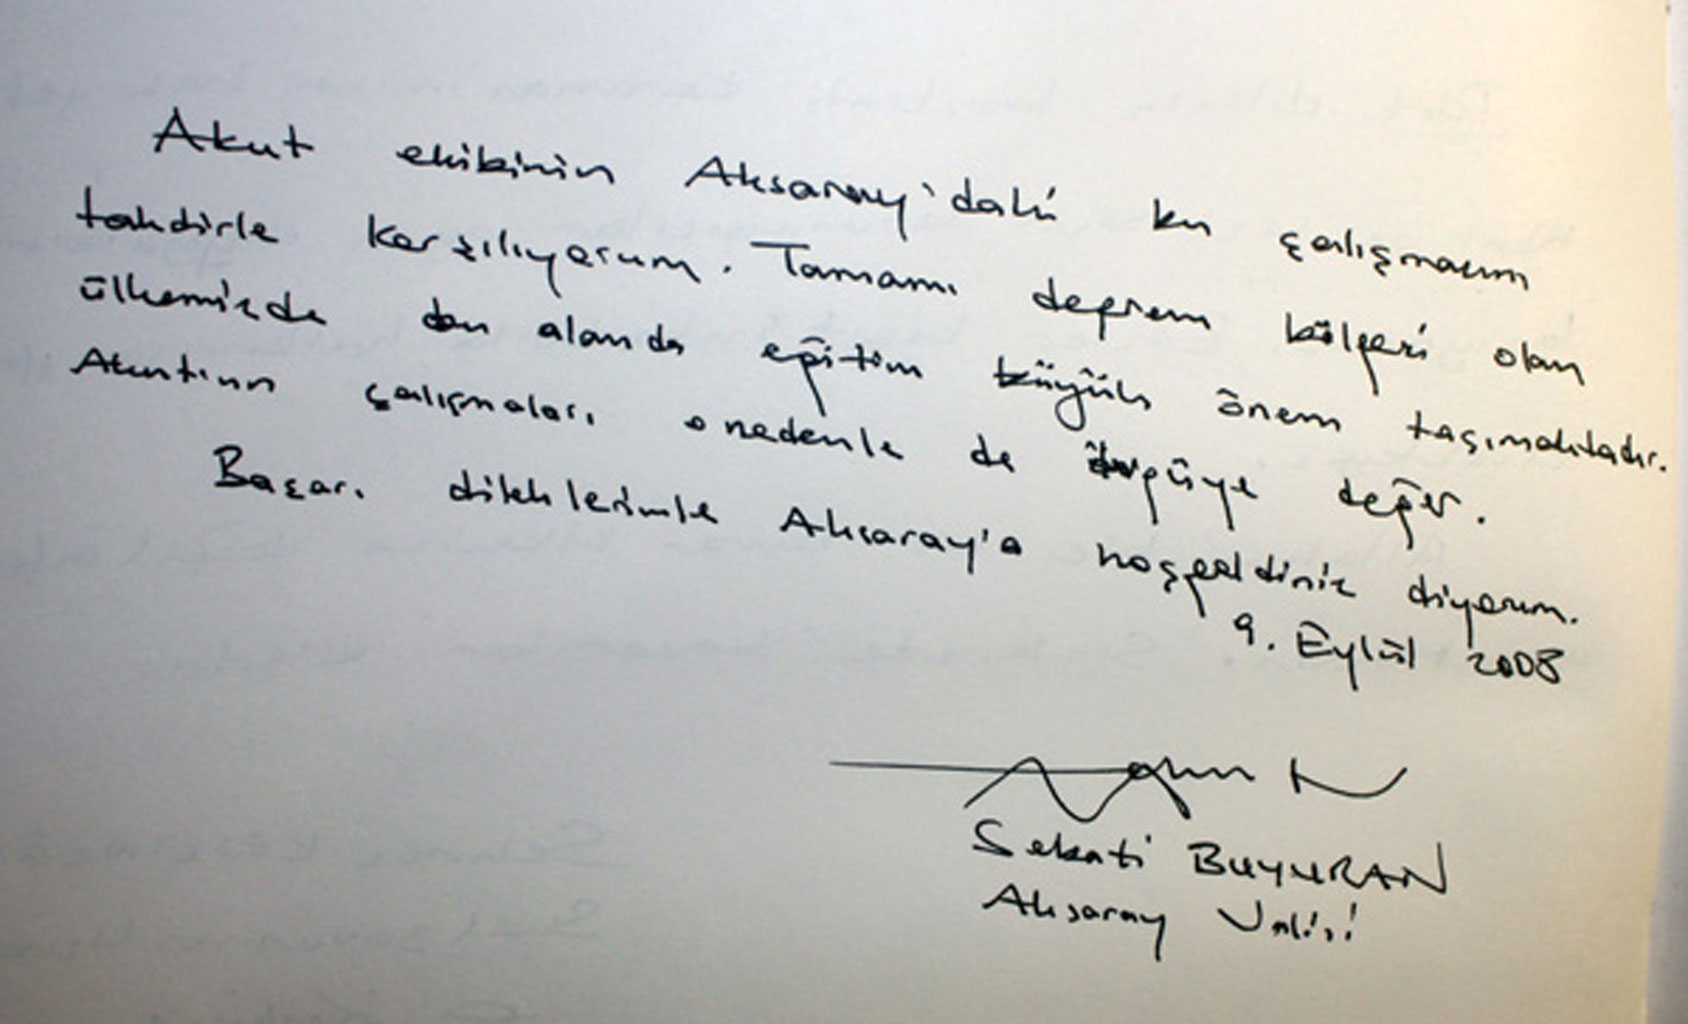 Akut ekibinin Aksaray'daki bu çalışmasını
takdirle karşılıyorum. Tamamı deprem bölgesi olan
ülkemizde bu alanda eğitim büyük önem taşımaktadır.
Akutının çalışmaları o nedenle de övgüye değer.
Başarı dileklerimle Aksaray'a hoşgeldiniz diyorum.
9. Eylül 2008
Sebati BUYURAN
Aksaray Valisi